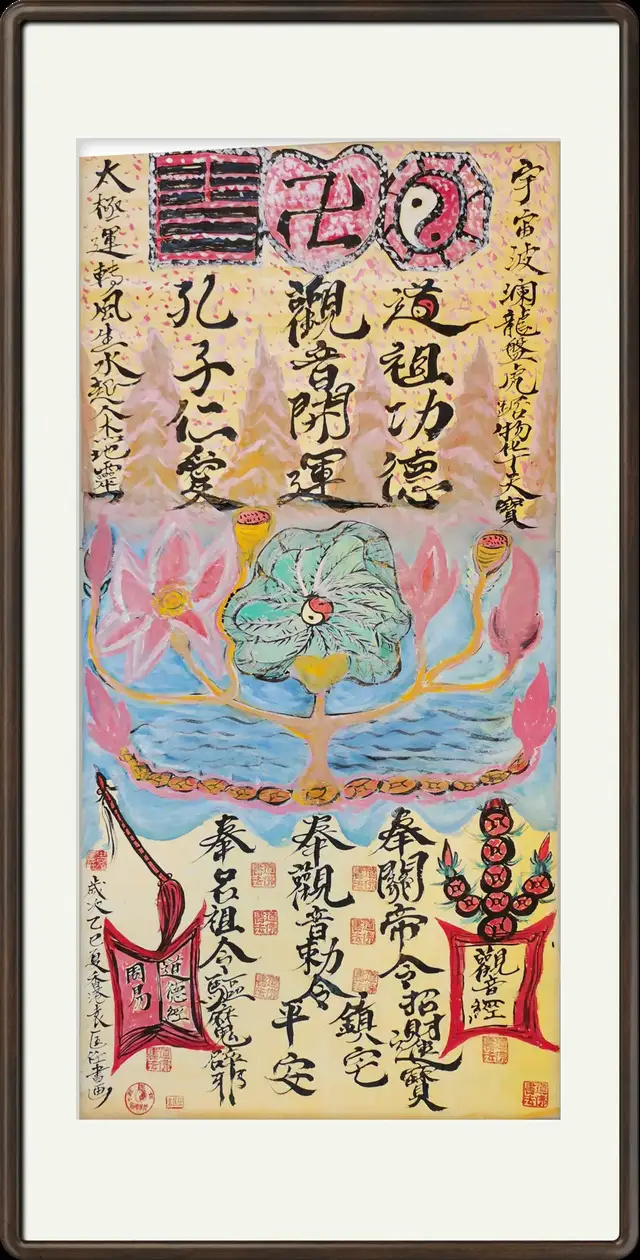 宇宙波瀾龍盤虎踞物华天寶
道祖功德
觀音開運
孔子仁愛
太極運轉風生水起人杰地靈
觀音經
奉關帝令招財進寶
奉觀音勅令鎮宅平安
奉呂祖令驅魔辟邪
道德經
周易
歲次乙巳夏香港袁書画